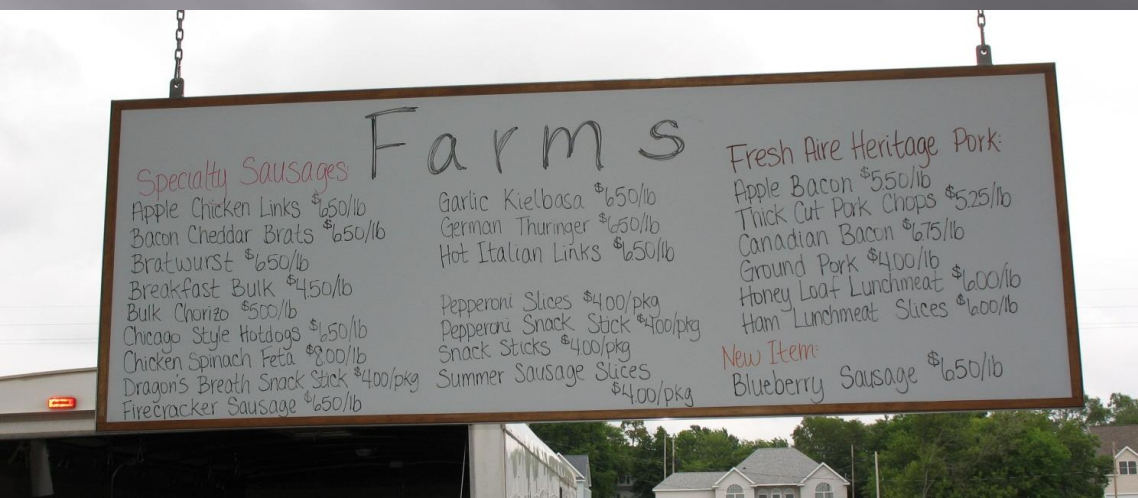 Farms
Specialty Sausages:
Apple Chicken Links $6.50/lb
Bacon Cheddar Brats $6.50/lb
Bratwurst $6.50/lb
Breakfast Bulk $4.50/lb
Bulk Chorizo $5.00/lb
Chicago Style Hotdogs $6.50/lb
Chicken Spinach Feta $8.00/lb
Dragon's Breath Snack Stick $4.00/pkg
Firecracker Sausage $6.50/lb
Garlic Kielbasa $6.50/lb
German Thuringer $6.50/lb
Hot Italian Links $6.50/lb
Pepperoni Slices $4.00/pkg
Pepperoni Snack Stick $4.00/pkg
Snack Sticks $4.00/pkg
Summer Sausage Slices
$4.00/pkg
Fresh Aire Heritage Pork:
Apple Bacon $5.50/lb
Thick Cut Pork Chops $5.25/lb
Canadian Bacon $6.75/lb
Ground Pork $4.00/lb
Honey Loaf Lunchmeat $6.00/lb
Ham Lunchmeat Slices $6.00/lb
New Item:
Blueberry Sausage $6.50/lb